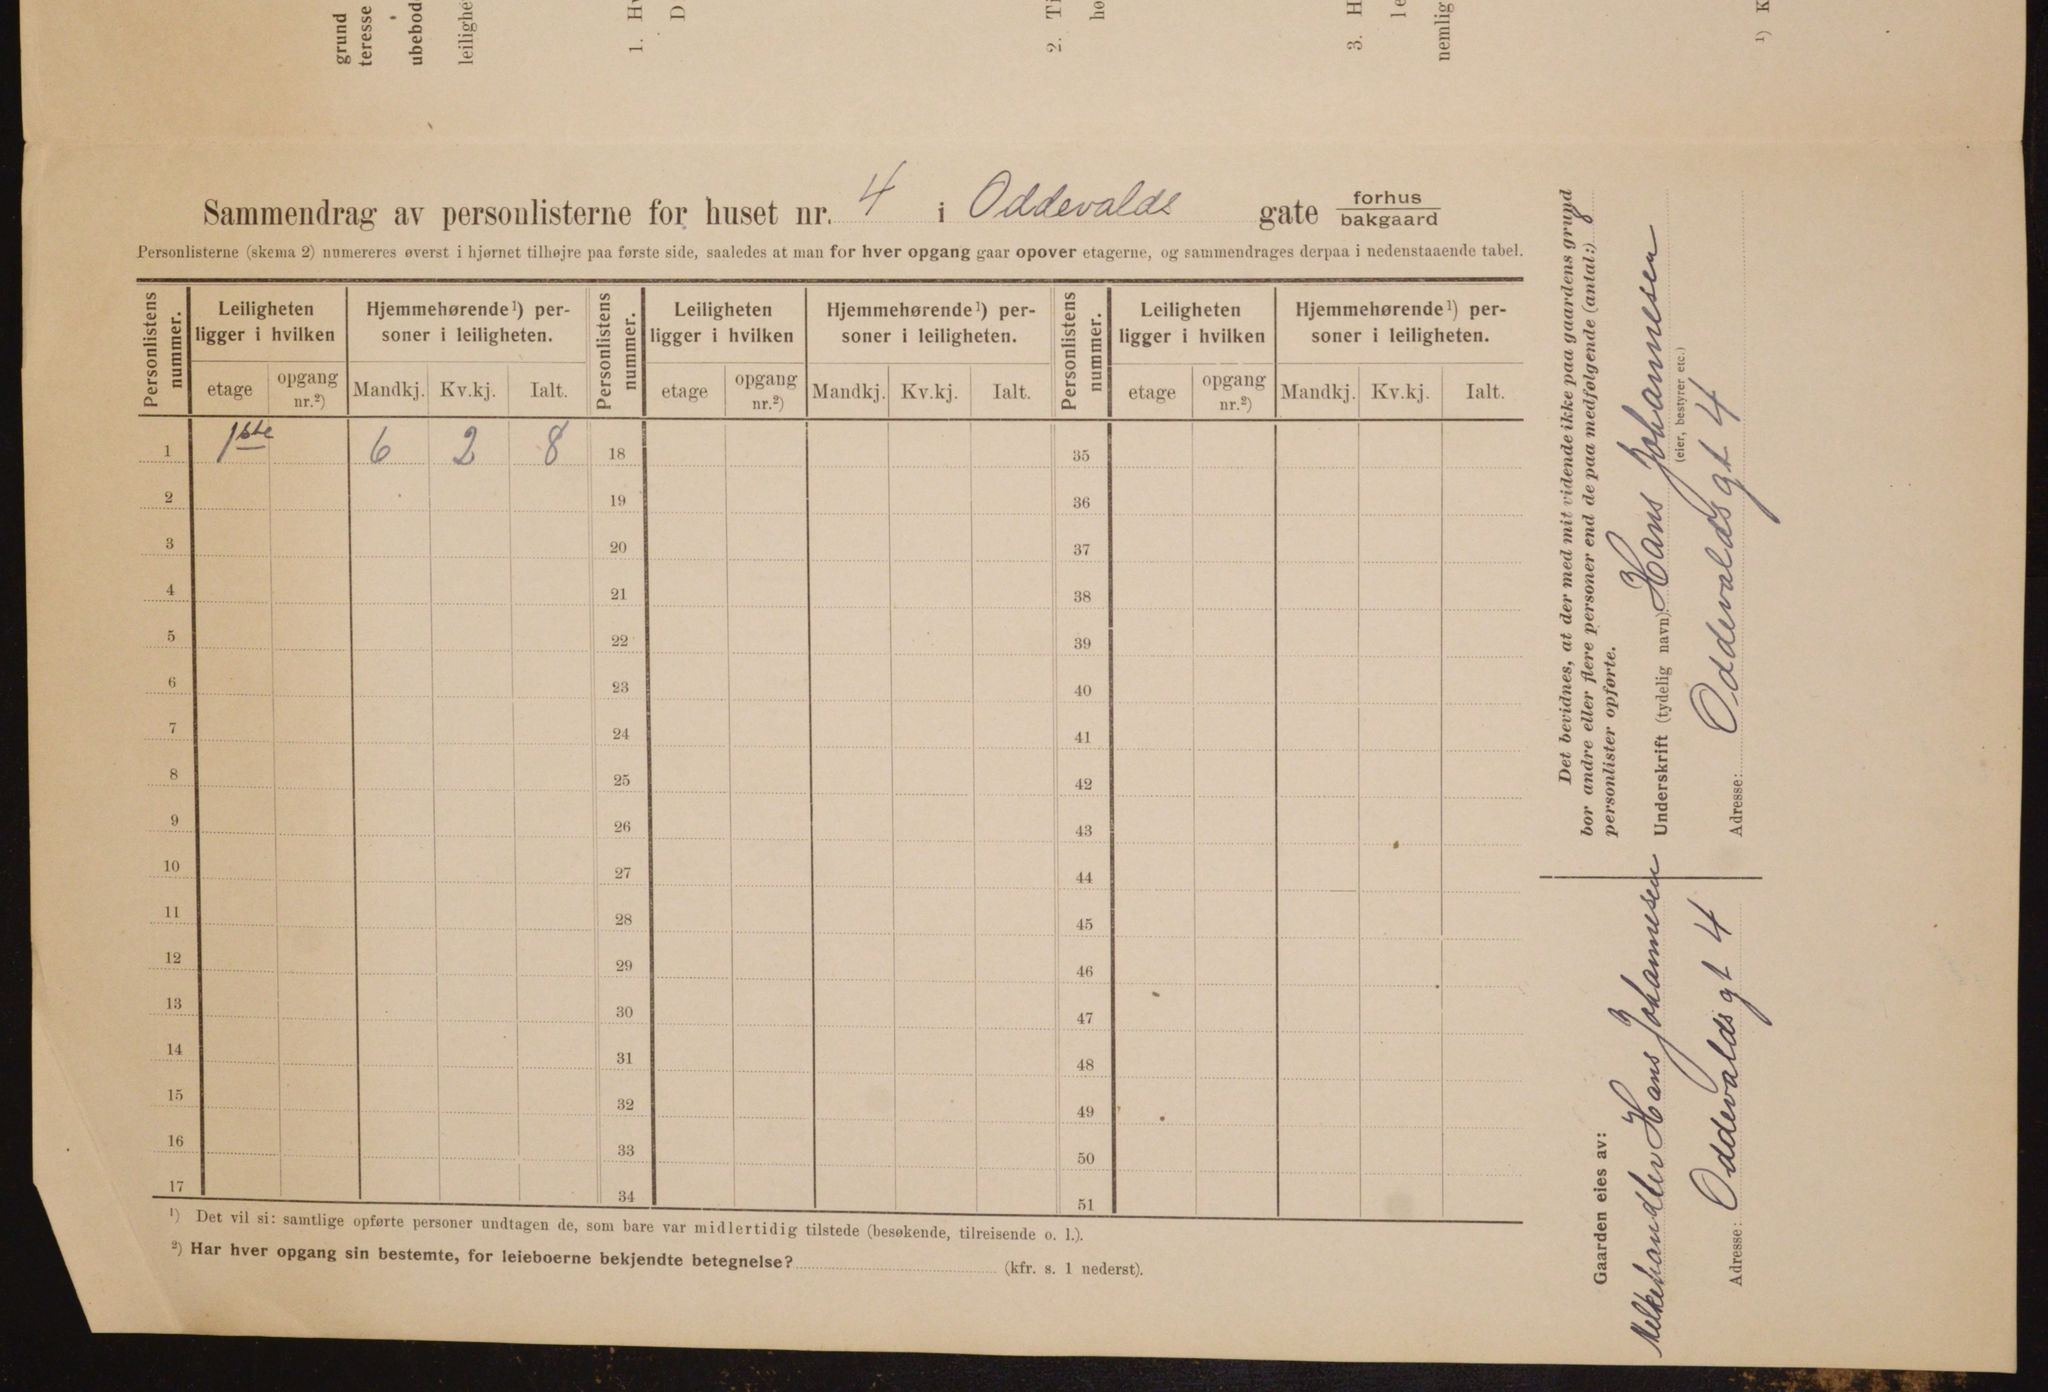 grund
teresse
ubebod
leilighe
1. Hv
D
2. Ti
hø
3. H
le
nemlig
¹) K
Sammendrag av personlisterne for huset nr. 4 i Oddevalds gate forhus / bakgaard
Personlisterne (skema 2) numereres øverst i hjørnet tilhøjre paa første side, saaledes at man for hver opgang gaar opover etagerne, og sammendrages derpaa i nedenstaaende tabel.
Personlistens nummer. Leiligheten ligger i hvilken Hjemmehørende¹) personer i leiligheten. Personlistens nummer. Leiligheten ligger i hvilken Hjemmehørende¹) personer i leiligheten. Personlistens nummer. Leiligheten ligger i hvilken Hjemmehørende¹) personer i leiligheten.
etage opgang nr.²) Mandkj. Kv.kj. Ialt. etage opgang nr.²) Mandkj. Kv.kj. Ialt. etage opgang nr.²) Mandkj. Kv.kj. Ialt.
1 1ste 6 2 8 18 35
2 19 36
3 20 37
4 21 38
5 22 39
6 23 40
7 24 41
8 25 42
9 26 43
10 27 44
11 28 45
12 29 46
13 30 47
14 31 48
15 32 49
16 33 50
17 34 51
¹) Det vil si: samtlige opførte personer undtagen de, som bare var midlertidig tilstede (besøkende, tilreisende o. l.).
²) Har hver opgang sin bestemte, for leieboerne bekjendte betegnelse? (kfr. s. 1 nederst).
Det bevidnes, at der med mit vidende ikke paa gaardens grund
bor andre eller flere personer end de paa medfølgende (antal:)
personlister opførte.
Underskrift (tydelig navn) Hans Johannesen
(eier, bestyrer etc.)
Adresse: Oddevalds gt 4
Gaarden eies av:
Melkehandler Hans Johannesen
Adresse: Oddevalds gt 4